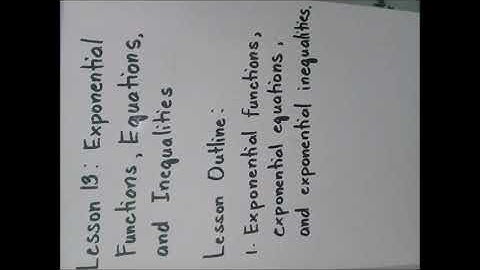 Lesson 13: Exponential
Functions, Equations,
and Inequalities
Lesson Outline:
1. Exponential functions,
exponential equations,
and exponential inequalities.